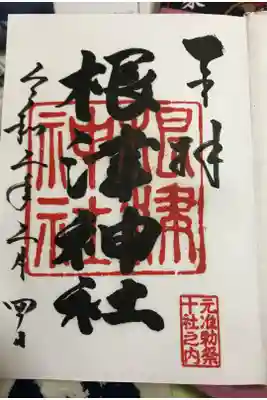 奉拝
根津神社
根津神社
元准勅祭
十社之内
令和二年二月四日